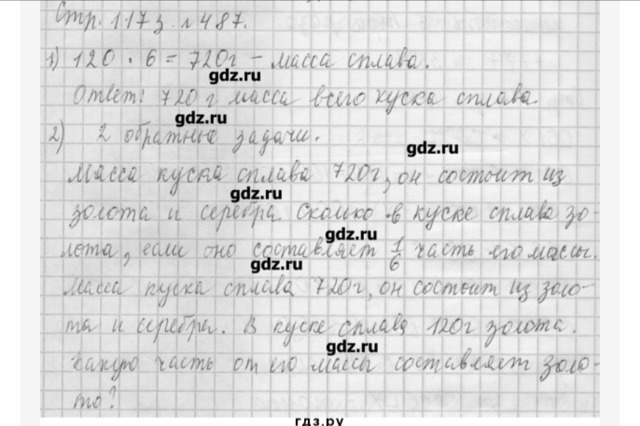 Стр. 173 № 487.
1) 120 · 6 = 720г – масса сплава.
gdz.ru
Ответ: 720 г масса всего куска сплава.
gdz.ru
2) 2 обратные задачи.
gdz.ru
Масса куска сплава 720г, он состоит из
gdz.ru
золота и серебра. Сколько в куске сплава зо-
gdz.ru
лота, если оно составляет 1/6 часть его массы.
gdz.ru
Масса куска сплава 720г, он состоит из золо-
та и серебра. В куске сплава 120г золота.
gdz.ru
Какую часть от его массы составляет золо-
то?
гдз.ру